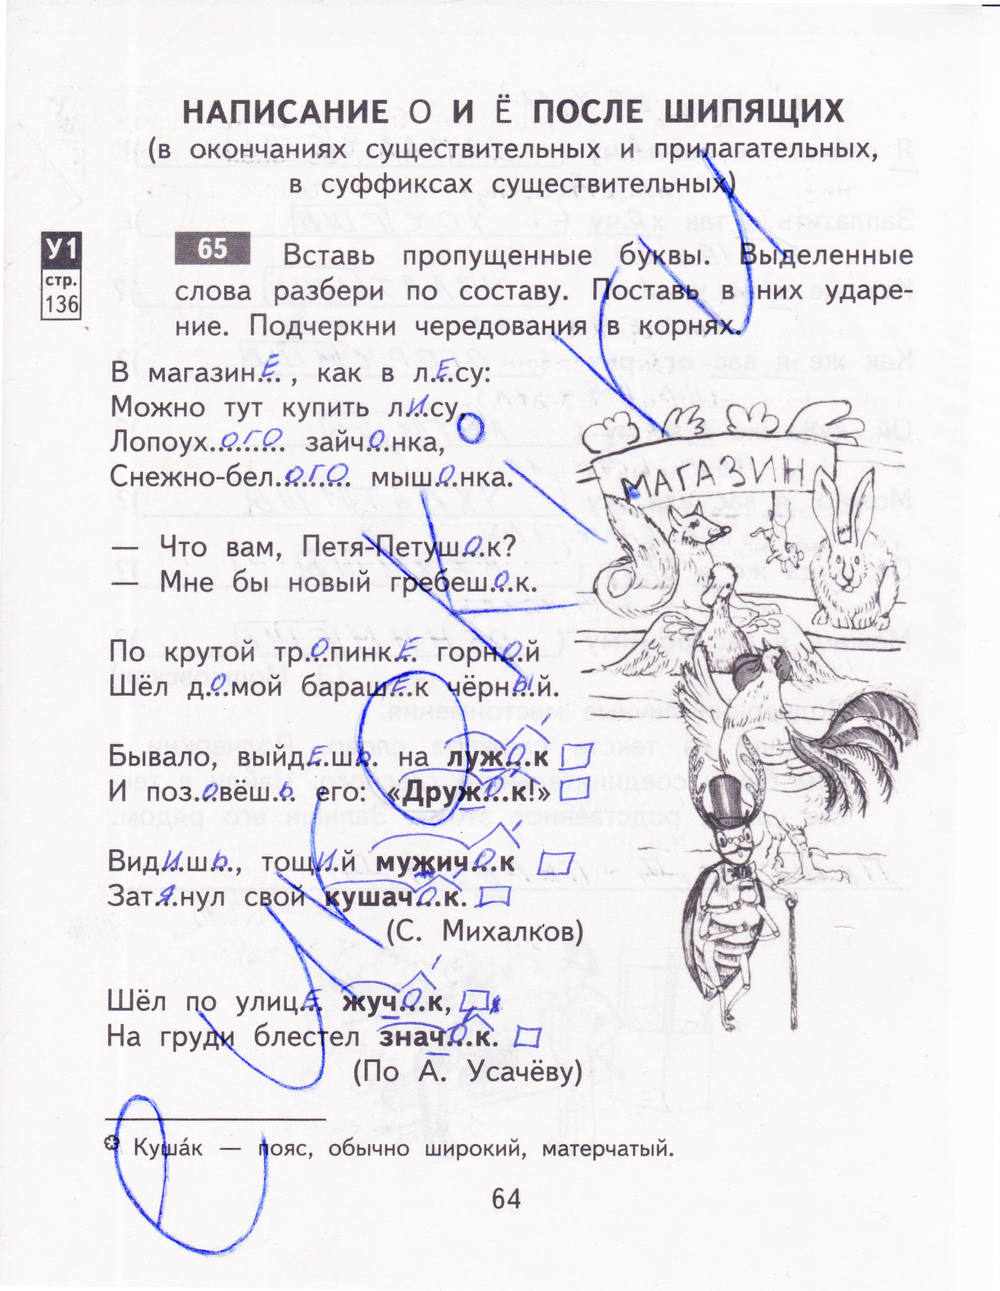 НАПИСАНИЕ О И Ё ПОСЛЕ ШИПЯЩИХ
(в окончаниях существительных и прилагательных,
в суффиксах существительных)
У1
стр.
136
65 Вставь пропущенные буквы. Выделенные
слова разбери по составу. Поставь в них ударе-
ние. Подчеркни чередования в корнях.
В магазинЕ, как в лЕсу:
Можно тут купить лИсу,
ЛопоухОГО зайчОнка,
Снежно-белОГО мышОнка.
— Что вам, Петя-ПетушОк?
— Мне бы новый гребешОк.
По крутой трОпинкЕ горнОй
Шёл дОмой барашЕк чёрнЫй.
Бывало, выйдЕшь на лужОк
И позОвёшь его: «ДружОк!»
ВидИшь, тощИй мужичОк
ЗатЯнул свой кушачОк.
(С. Михалков)
Шёл по улицЕ жучОк,
На груди блестел значОк.
(По А. Усачёву)
Куша́к — пояс, обычно широкий, матерчатый.
64
МАГАЗИН